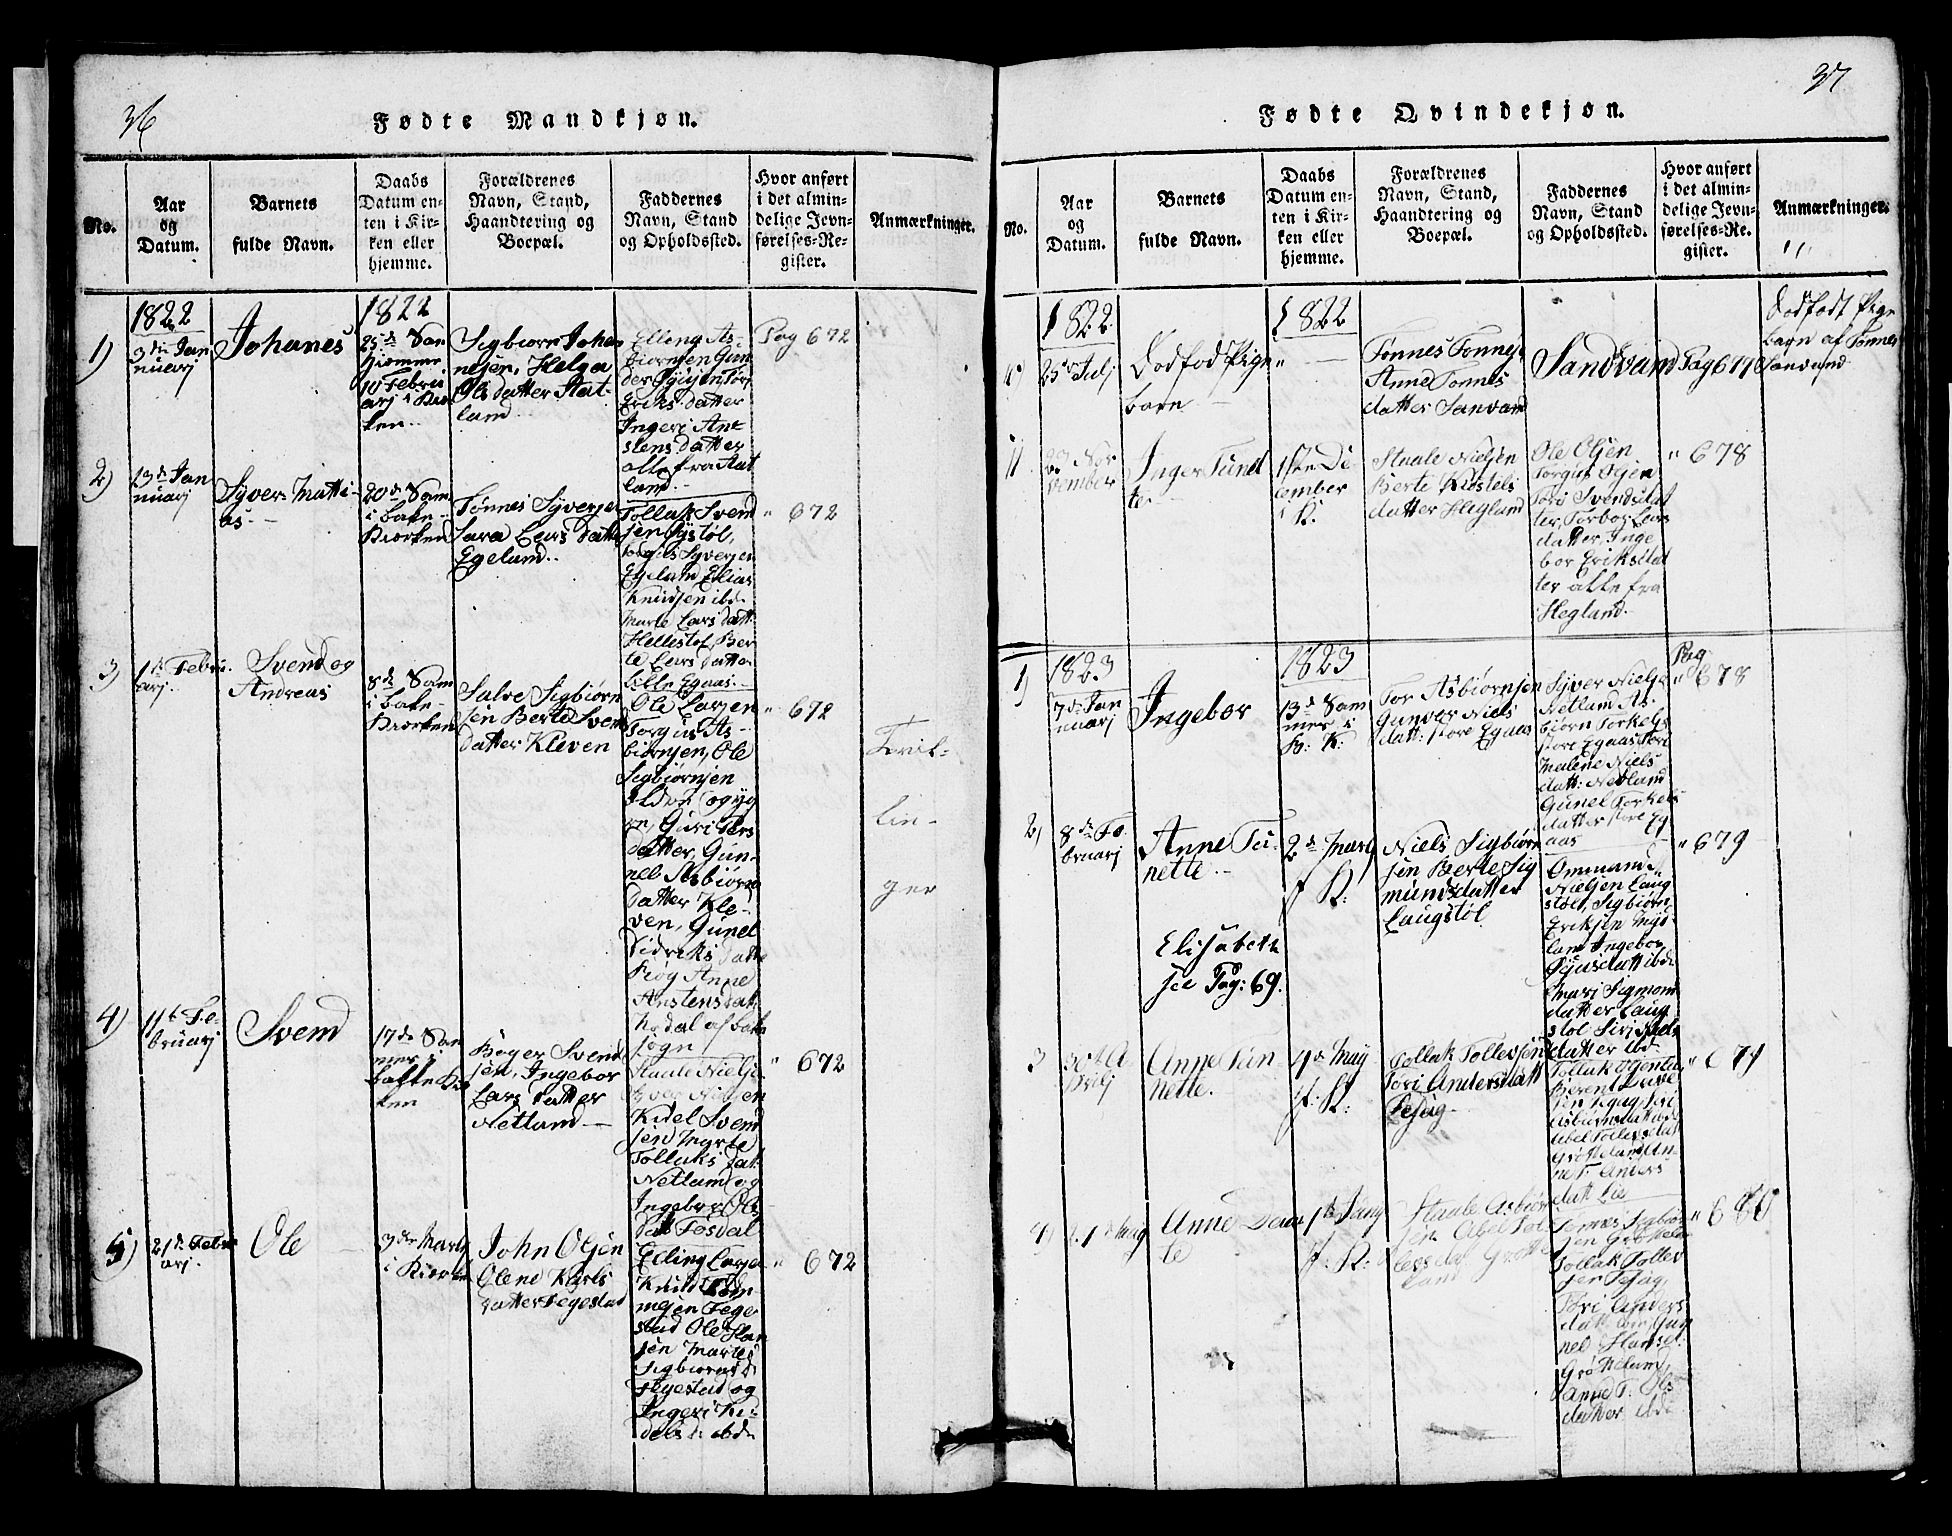 36
Fødte Mandkjøn.
No.
Aar
og
Datum.
Barnets
fulde Navn.
Daabs
Datum en-
ten i Kir-
ken eller
hjemme.
Forældrenes
Navn, Stand,
Haandtering og
Boepæl.
Faddernes
Navn, Stand
og Opholdssted.
Hvor anført
i det almin-
delige Jevn-
førelses-Re-
gister.
Anmærkninger.
1822
1822
1)
3de Jan
nuarj
Johanes
25de Sam
hjemme
10 Febru
arj i Kiør
ken
Sigbiørn Johan
nesen, Helga
Ols datter Aat-
land
Elling As-
biørnsen Gun
der
Eriks datter
Ingeri An-
stensdatter
alle fra Aat
land.
Pag 672
2)
13de Jan
nuarj
Syver Matti-
as.
20de Sam
i bakke-
Kiørken
Tønnes Syversen
Sara Lars datter
Egeland.
Tollak Svend
sen Nystøl,
Torgius Syversen
Egeland Elias
Knudsen ibd.
Marte Larsdatt.
Hellestøl, Ber
te Lars datter
lille Egaas.
" 672
3)
1ste Febru.
arj.
Svend og
Andreas
8de Sam
i bake-
Kiørken
Salve Sigbiørn
sen Berte Svend
datter Kleven
Ole Larsen
Torgius As-
biørnsen, Ole
Sigbiørnsen
datter, Gun-
nel Asbiørns
datter Kle-
ven, Gunel
Didriks datter
Anne
Anstensdat.
af bake
sogn
" 672
Tvil-
lin-
ger
4)
11te Fe
bruarj
Svend
17de Sam
mer i
bakke Kiør
ken
Børger Svend
sen, Ingebor
Lars datter
Netland
Staale Nielsen
Syver Nielsen
Kidel Svend
sen Myrte
Tollaks dat.
Netland og
Ingebor Ols
dat Fosdal
" 672
5)
21de Febru
arj.
Ole
3de Marts
i Kiørken
John Olsen
Olene Karls
datter Fegestad
Elling Larsen
Knud Tøn-
nesen Fege
stad Ole Han
sen Marte
Sigbiørnsd.
Fegestad og
Ingeri Ki-
delsd. ibd.
" 672
37
Fødte Qvindekjøn.
No.
Aar
og
Datum.
Barnets
fulde Navn.
Daabs
Datum en-
ten i Kir-
ken eller
hjemme.
Forældrenes
Navn, Stand,
Haandtering og
Boepæl.
Faddernes
Navn, Stand
og Opholdssted.
Hvor anført
i det almin-
delige Jevn-
førelses-Re-
gister.
Anmærkninger.
1822
1822
25de Julj
Dødfød Pige
barn
"
Tønnes Tønnes
Anne Tønnes
datter Sanvand
Sandvand
Pag 677
Dødfødt Pige
barn af Tønnes
Sanvand
11
23 No-
vember
Inger Tunet
te
1ste De
cember
i K.
Staale Nielsen
Berte Kiøstels
datter Hegland
Ole Olsen
Torgius Ogsen
Tori Svendsdat
ter, Torbor Lars
datter, Inge
bor Eriksdat
ter alle fra
Hegland.
" 678
1823
1823
1)
7de Jan
nuarj
Ingebor
13de Sam
mer i
B. K.
Tor Asbiørnsen
Gunvor Niels
datt: store Egaas
Syver Nielsen
Netland As-
biørn Torkels
store Egaas Tori
Malene Niels
datt: Netland
Gunel Torkels
datter store Eg
aas
Pag
" 678
2)
8de Fe
bruarj
Anne Tu-
nette
2de Marts
i K.
Niels Sigbiørn
sen Berte Sig
munds datter
Laugstøl
Ommund
Nielsen Laug
støl, Sigbiørn
Eriksen
Ingebor
ibd
Mari Sigmon
datter Laug
støl Siri Niels
datter ibd.
" 679
Elisabeth
see Pag: 69.
3
30te A
prilj
Anne Tun
nette.
4de May
i K:
Tollak Tollevsen
Tori Andersdatt
Pesag
Tollak
Berent
Asbiørnsdatt ibd
Abel Tollevsdat
Grøtteland An-
ne T. Anders
datt Lie
" 679
4)
Anne
te
i K:
Staale Asbiørn
sen Abel Tol
levsdat Grøtte
land
Tønnes Sigbiørn
sen Grøtteland
Tollak Tollev
sen Pesag,
Tori Anders
datt ibd, Gun
nel Hansd.
Grøtteland,
Anne T. Ols
datter ibd
" 680